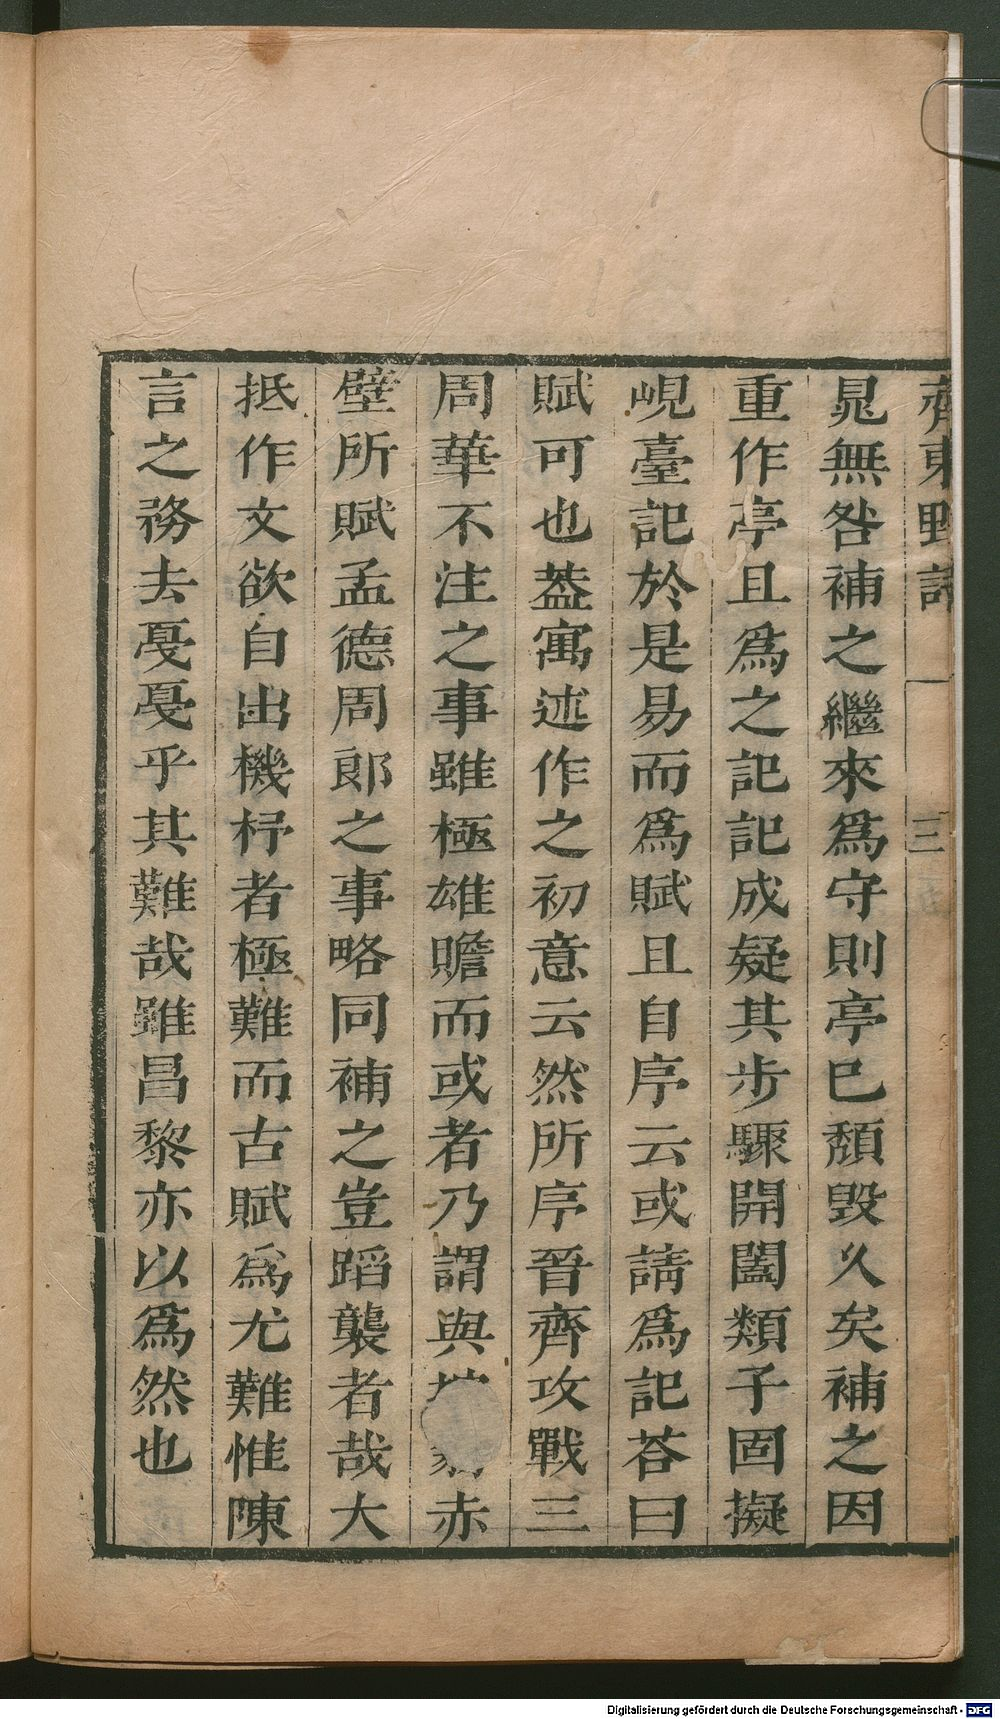 齊東野語 一 三
晁無咎補之繼來爲守則亭已頹毀久矣補之因
重作亭且爲之記記成疑其步驟開闔類子固擬
峴臺記於是易而爲賦且自序云或請爲記荅曰
賦可也葢寓述作之初意云然所序晉齊攻戰三
周華不注之事雖極雄贍而或者乃謂與赤
壁所賦孟德周郎之事略同補之豈蹈襲者哉大
抵作文欲自出機杼者極難而古賦爲尤難惟陳
言之務去戞戞乎其難哉雖昌黎亦以爲然也
Digitalisierung gefördert durch die Deutsche Forschungsgemeinschaft - DFG